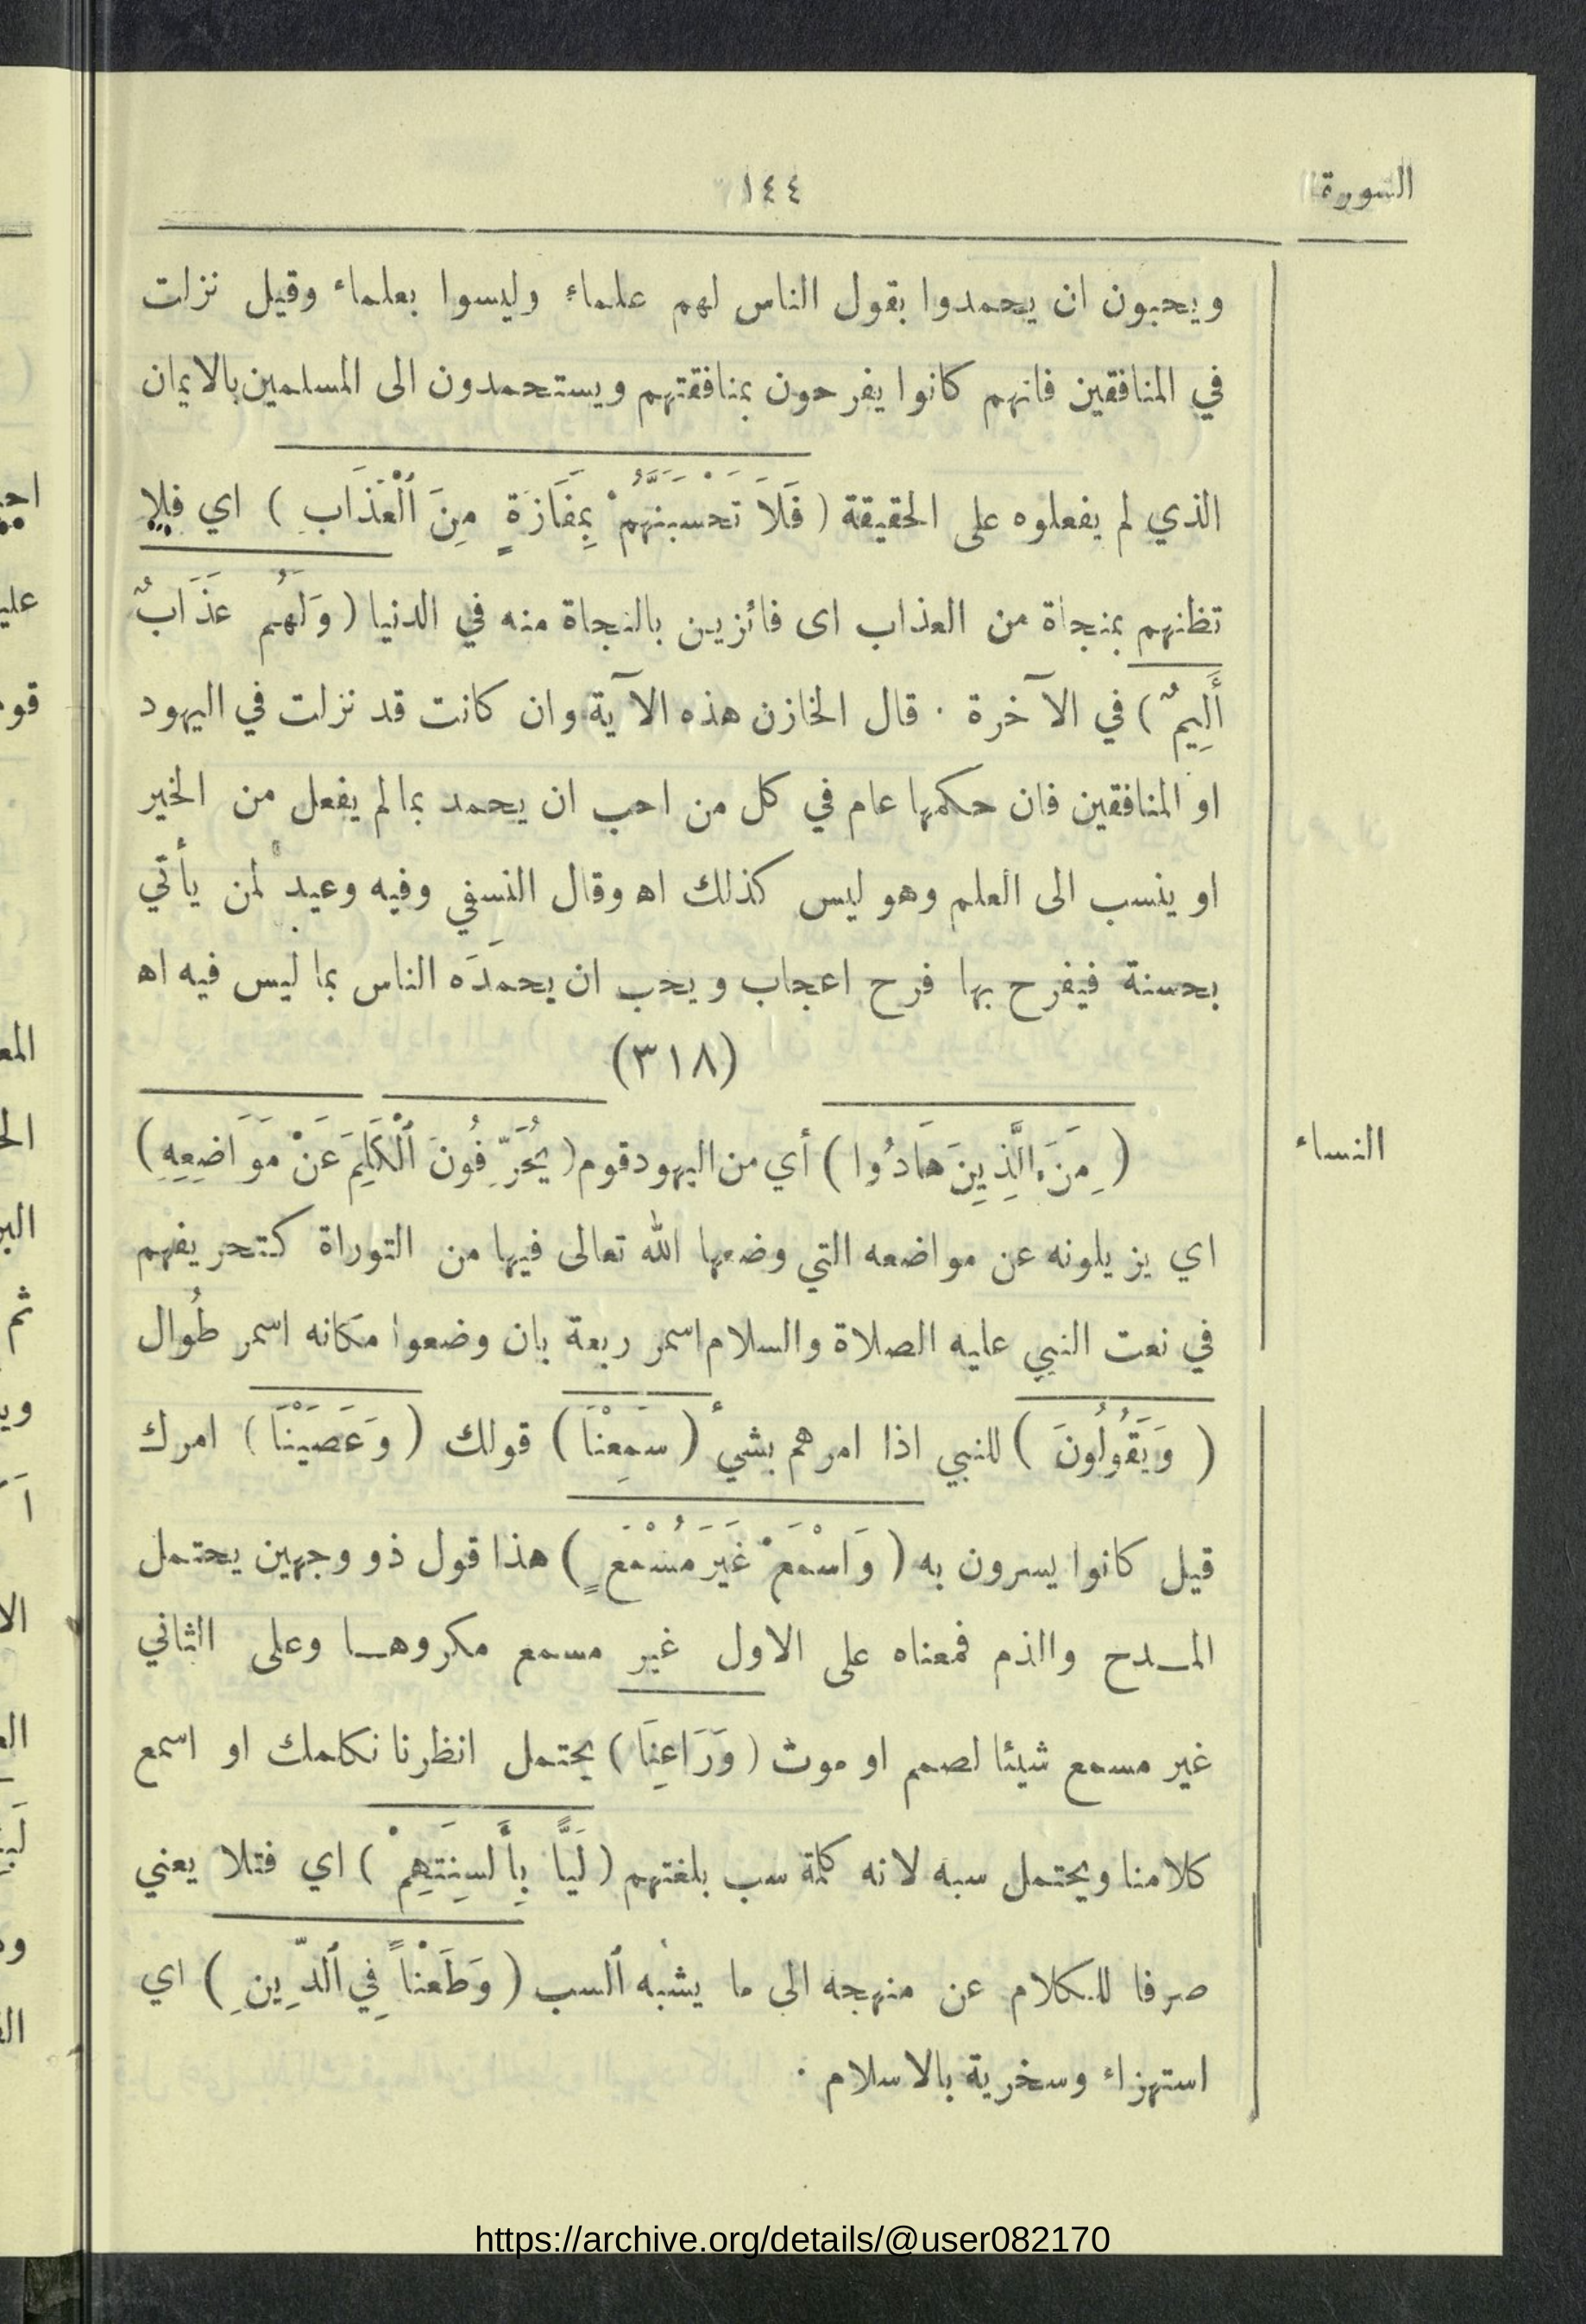 السورة
١٤٤
ويحبون ان يحمدوا بقول الناس لهم علماء وليسوا بعلماء وقيل نزلت
في المنافقين فانهم كانوا يفرحون بمنافقتهم ويستحمدون الى المسلمين بالايمان
الذي لم يفعلوه على الحقيقة ( فَلَا تَحْسَبَنَّهُمْ بِمَفَازَةٍ مِنَ ٱلْعَذَابِ ) اي فلا
تظنهم بمنجاة من العذاب اى فائزين بالنجاة منه في الدنيا ( وَلَهُم عَذَابٌ
أَلِيمٌ ) في الآخرة . قال الخازن هذه الآية وان كانت قد نزلت في اليهود
او المنافقين فان حكمها عام في كل من احب ان يحمد بما لم يفعل من الخير
او ينسب الى العلم وهو ليس كذلك اه وقال النسفي وفيه وعيد لمن يأتي
بحسنة فيفرح بها فرح اعجاب ويحب ان يحمدَه الناس بما ليس فيه اه
(٣١٨)
النساء
( مِنَ الَّذِينَ هَادُوا ) أي من اليهود قوم ( يُحَرِّفُونَ ٱلْكَلِمَ عَنْ مَوَاضِعِهِ )
اي يزيلونه عن مواضعه التي وضعها الله تعالى فيها من التوراة كتحريفهم
في نعت النبي عليه الصلاة والسلام اسمر ربعة بان وضعوا مكانه اسمر طُوال
( وَيَقُولُونَ ) للنبي اذا امرهم بشئ ( سَمِعْنَا ) قولك ( وَعَصَيْنَا ) امرك
قيل كانوا يسرون به ( وَاسْمَعْ غَيْرَ مُسْمَعٍ ) هذا قول ذو وجهين يحتمل
المـدح والذم فمعناه على الاول غير مسمع مكروهـا وعلى الثاني
غير مسمع شيئا لصمم او موت ( وَرَاعِنَا ) يحتمل انظرنا نكلمك او اسمع
كلامنا ويحتمل سبه لانه كلمة سب بلغتهم ( لَيًّا بِأَلسِنَتِهِمْ ) اي فتلا يعني
صرفا للكلام عن منهجه الى ما يشبه ٱلسب ( وَطَعْنًا فِي ٱلدِّينِ ) اي
استهزاء وسخرية بالاسلام .
https://archive.org/details/@user082170